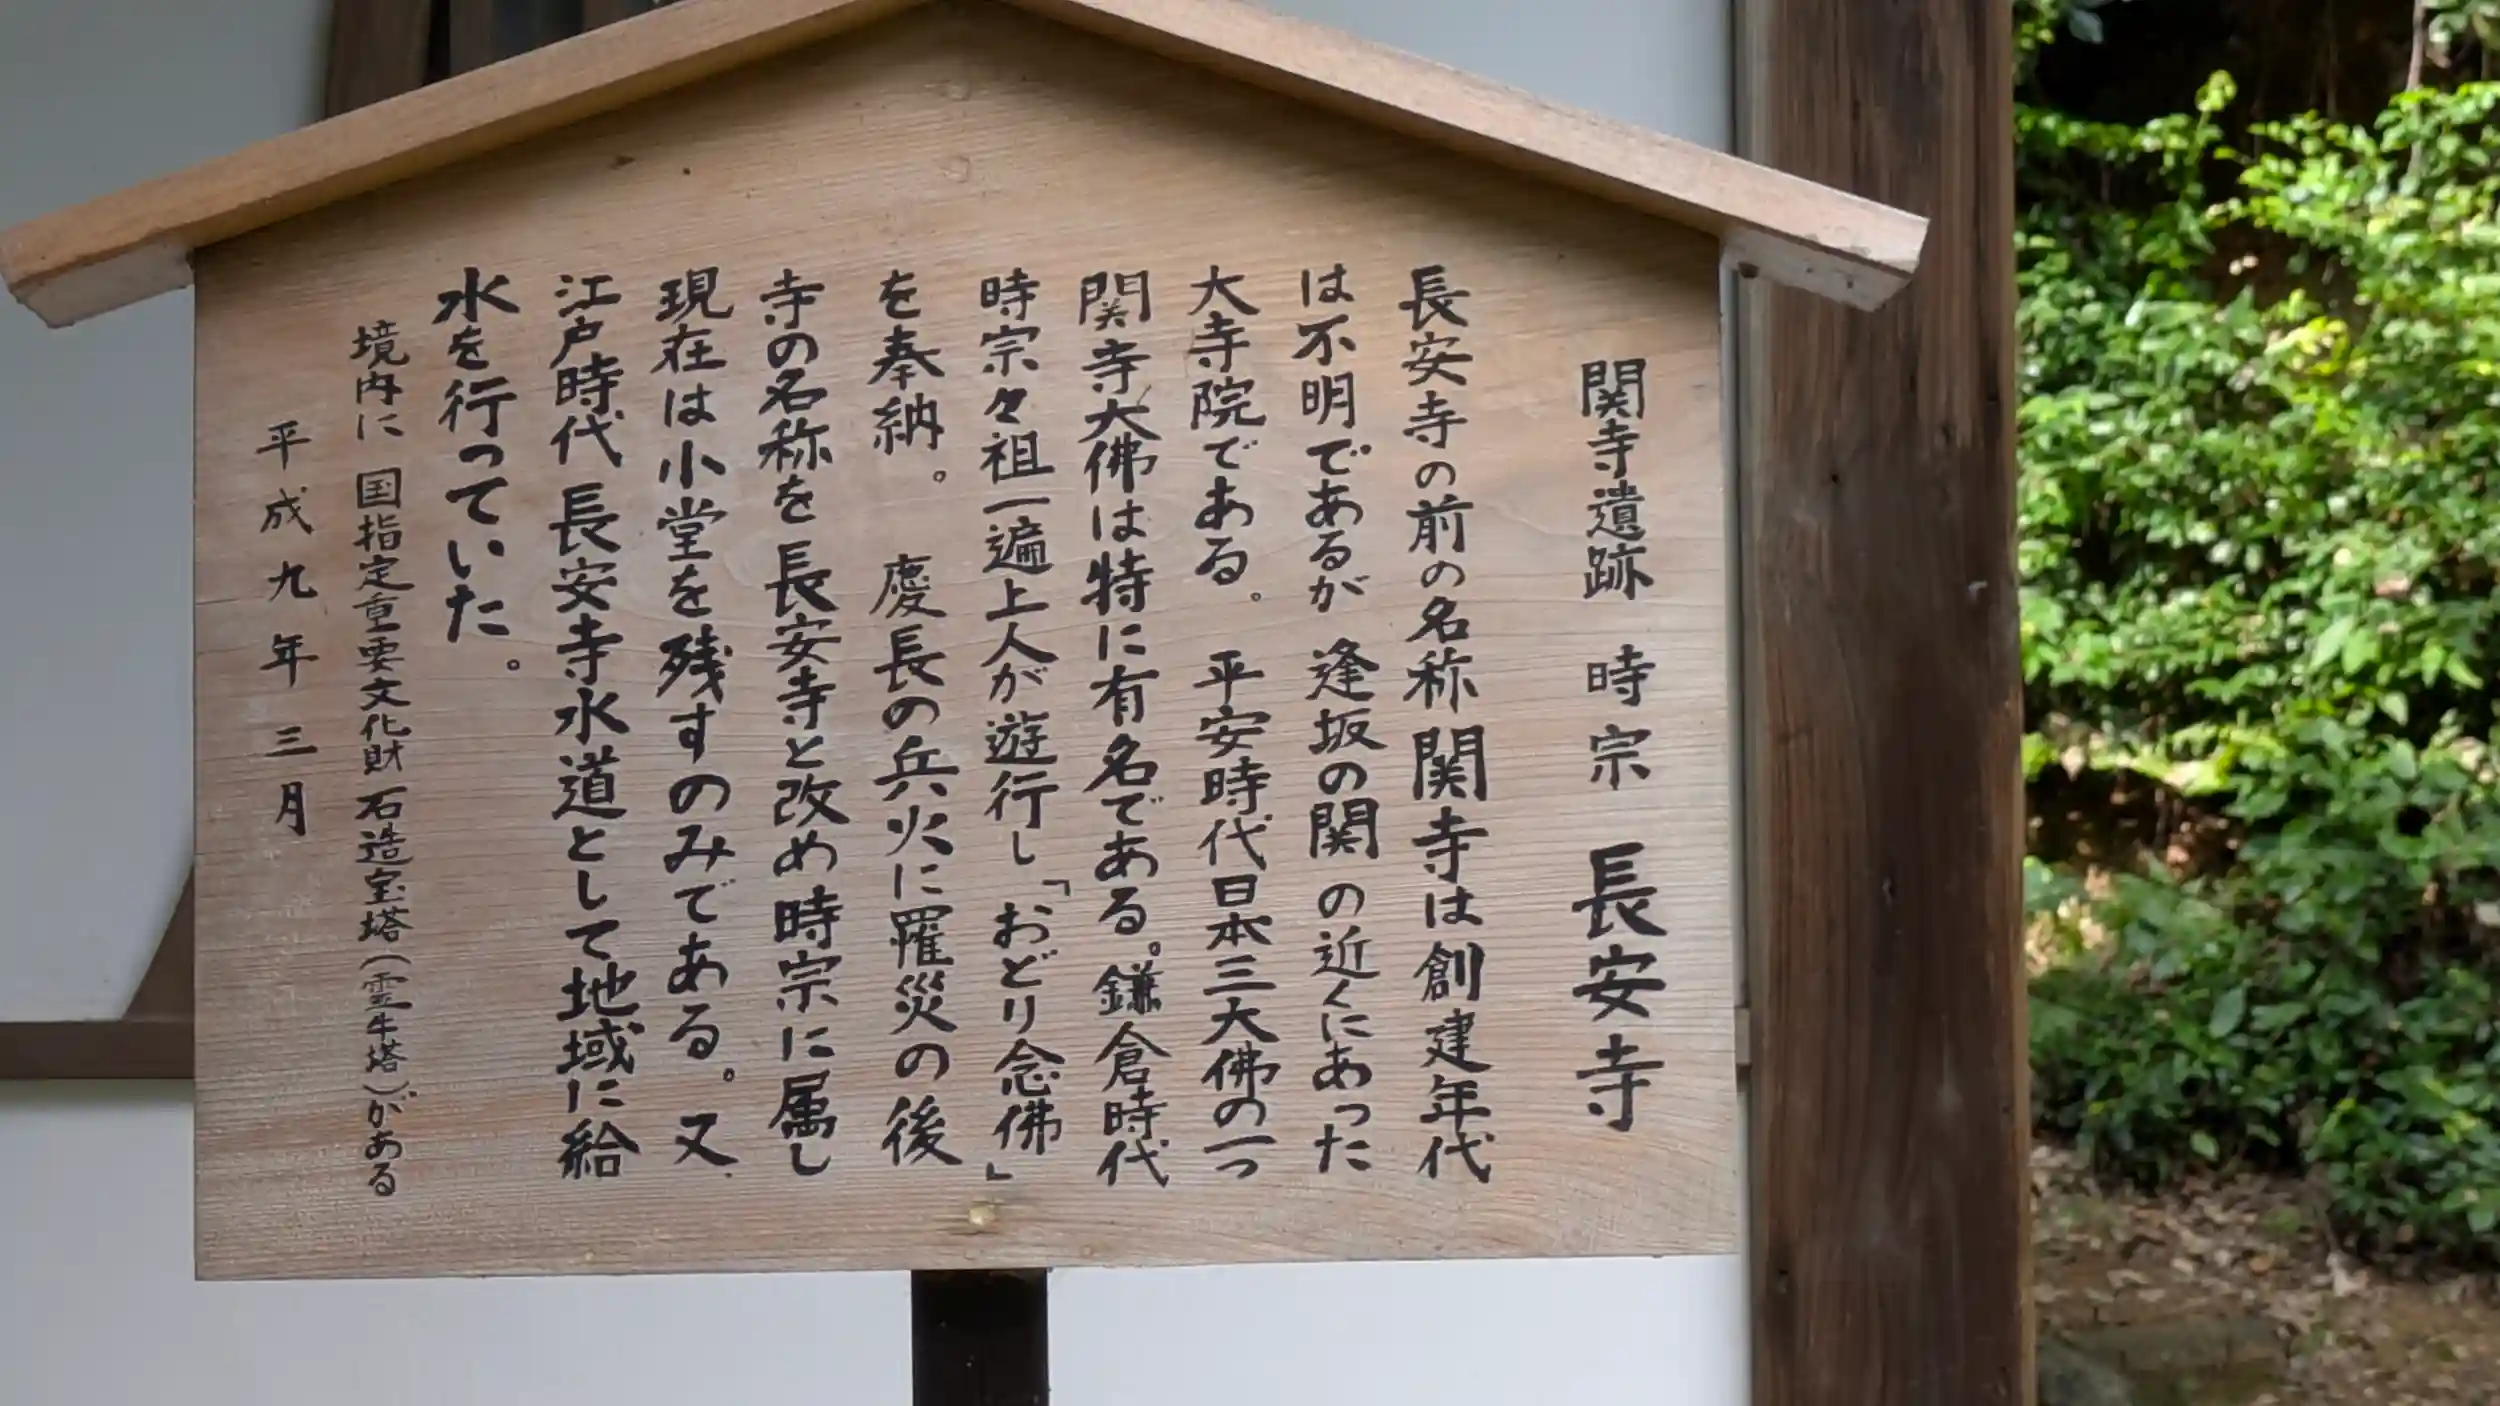 関寺遺跡 時宗 長安寺
長安寺の前の名称関寺は創建年代
は不明であるが 逢坂の関の近くにあった
大寺院である。 平安時代日本三大佛の一つ
関寺大佛は特に有名である。鎌倉時代
時宗々祖一遍上人が遊行し「おどり念佛」
を奉納。 慶長の兵火に罹災の後
寺の名称を長安寺と改め時宗に属し
現在は小堂を残すのみである。又
江戸時代 長安寺水道として地域に給
水を行っていた。
境内に 国指定重要文化財 石造宝塔(霊牛塔)がある
平成九年三月